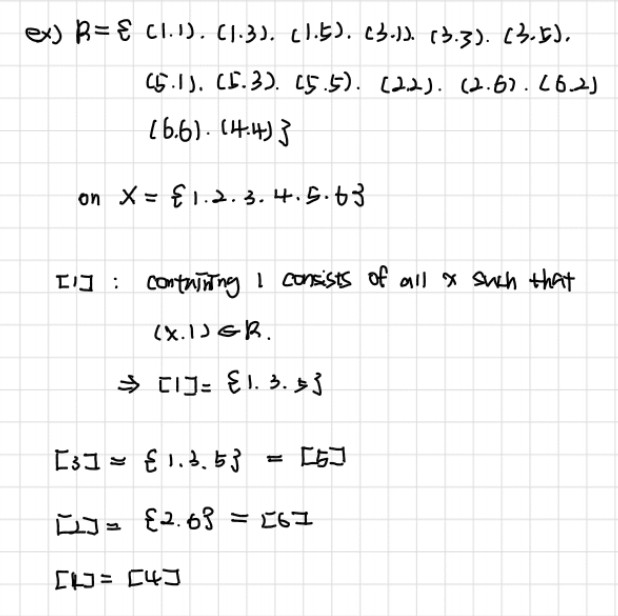 ex) R = { (1.1). (1.3). (1.5). (3.1). (3.3). (3.5).
(5.1). (5.3). (5.5). (2.2). (2.6). (6.2)
(6.6). (4.4) }
on X = { 1. 2. 3. 4. 5. 6 }
[1] : containing 1 consists of all x such that
(x.1) ∈ R.
⇒ [1] = { 1. 3. 5 }
[3] = { 1. 3. 5 } = [5]
[2] = { 2. 6 } = [6]
= [4]